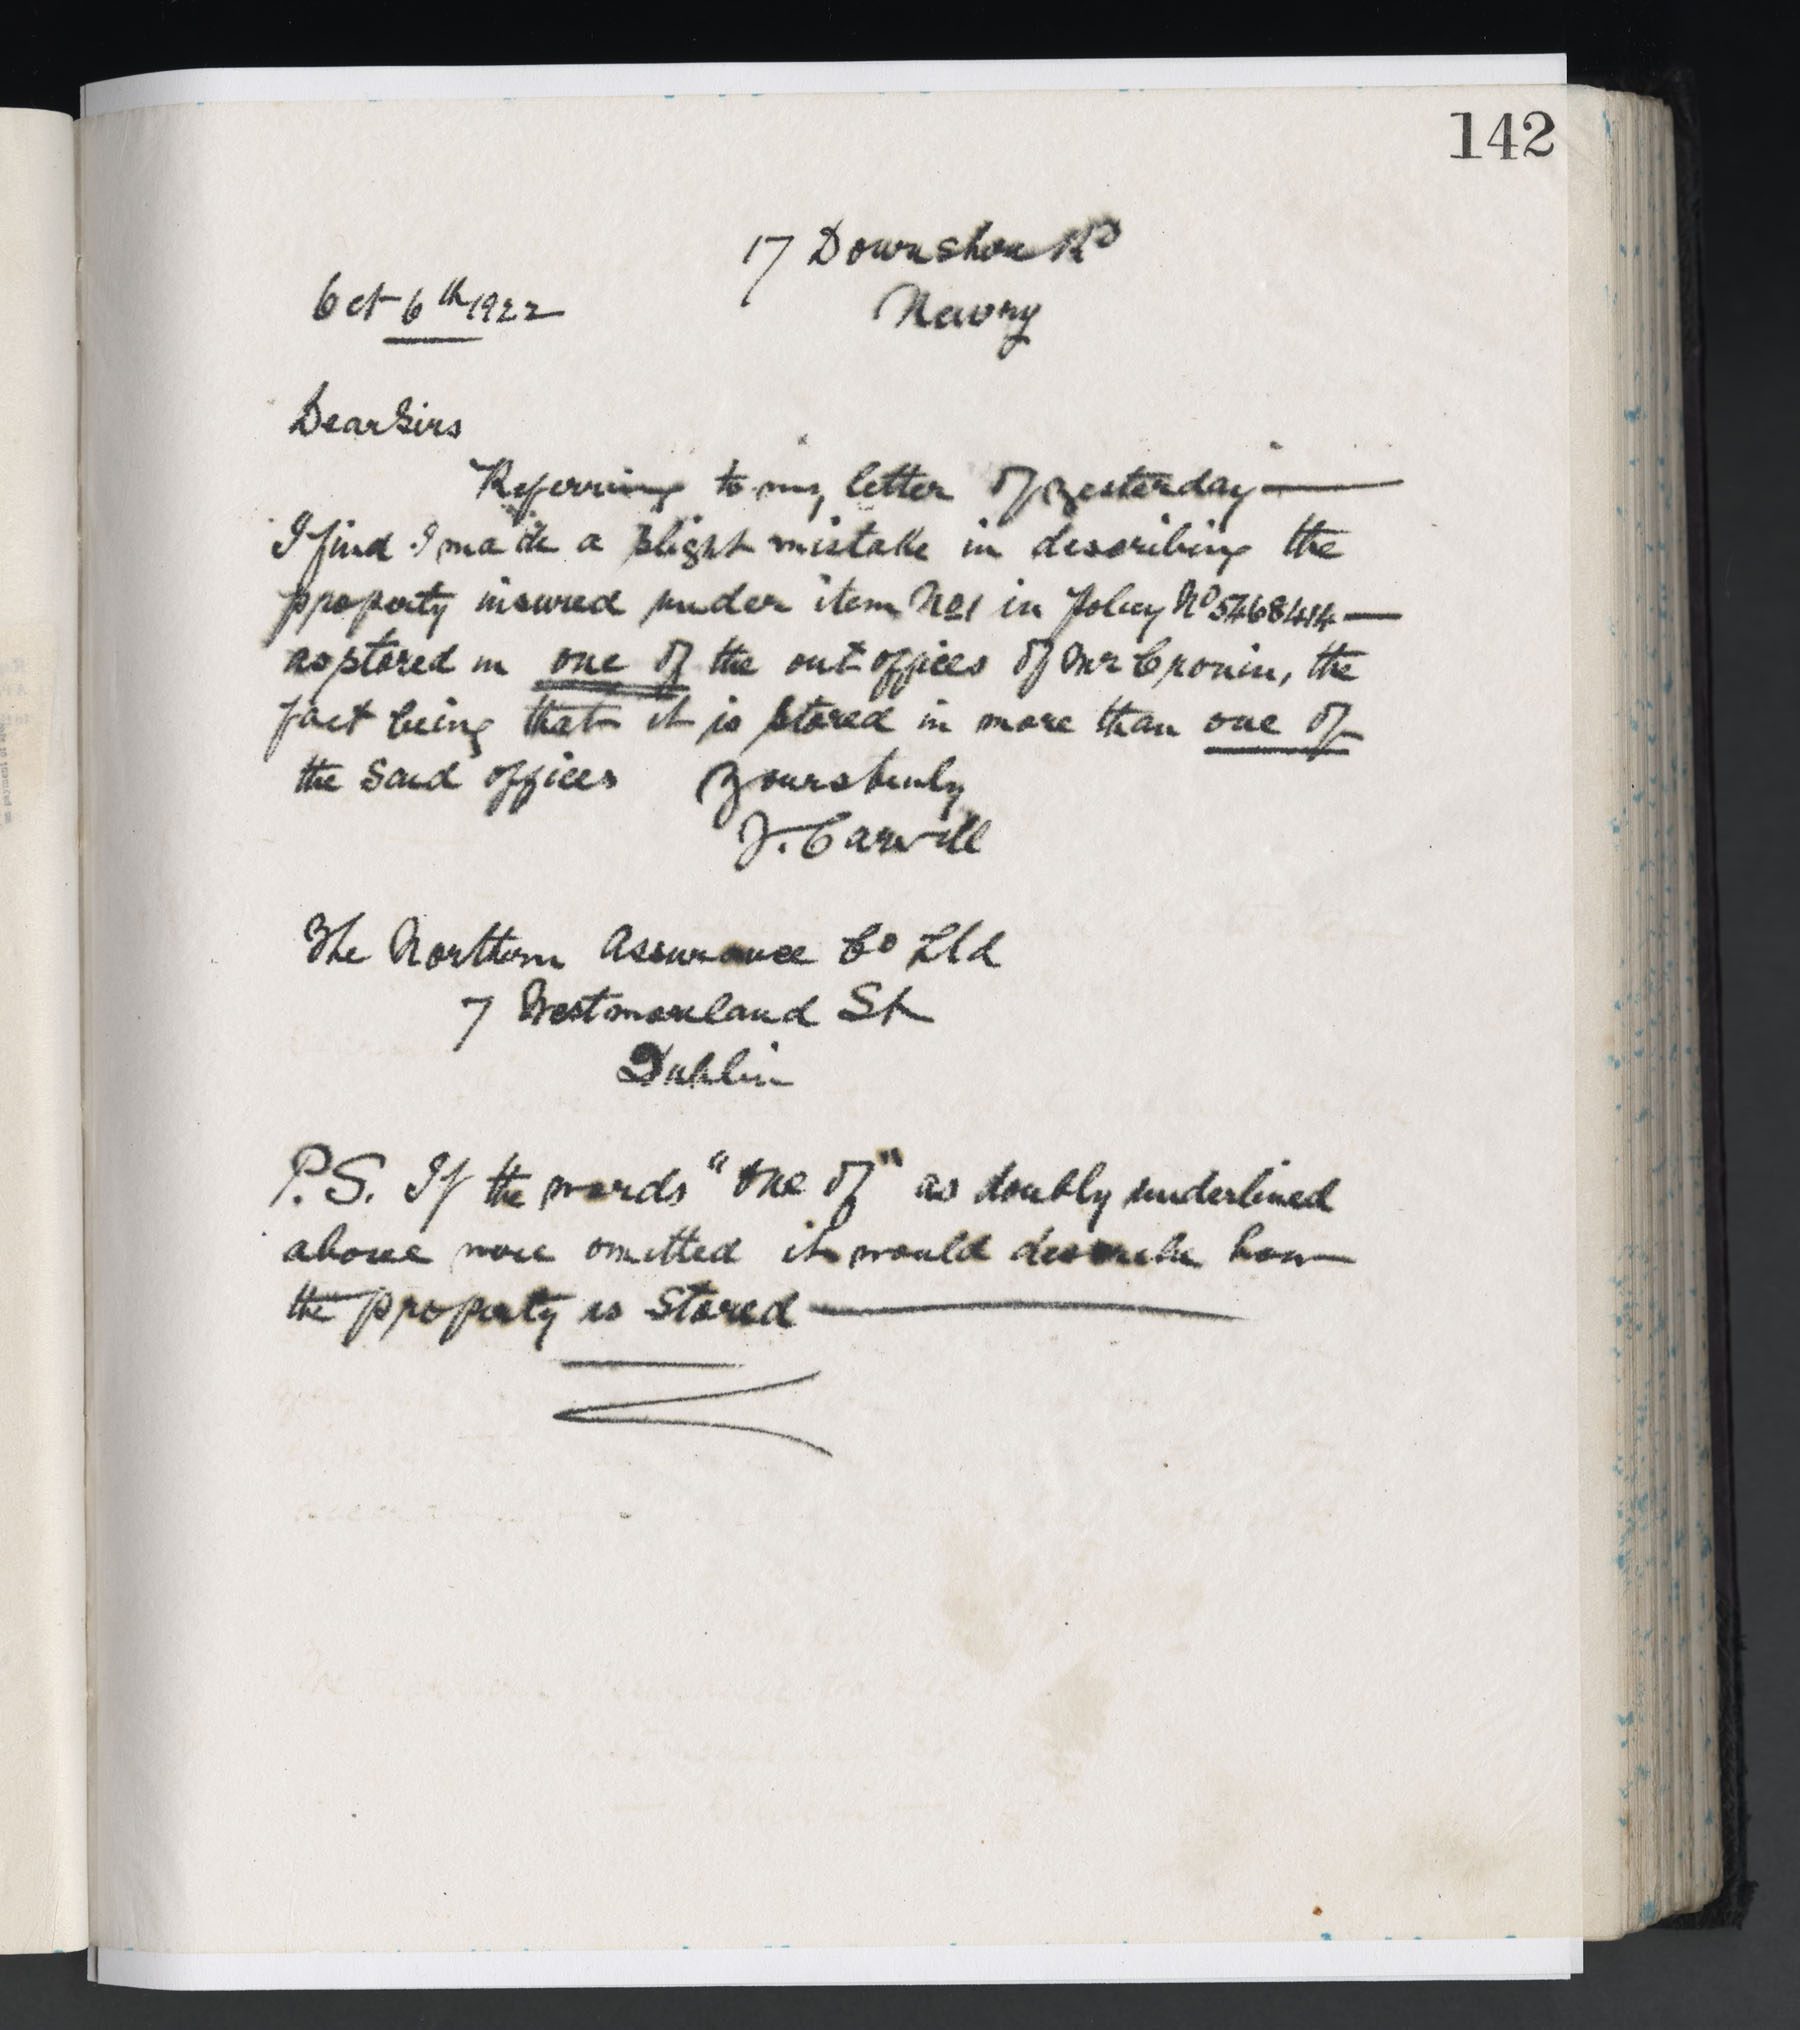 142
17 Downshire Rd
Oct 6th 1922
Newry
Dear Sirs
Referring to my letter of yesterday —
I find I made a slight mistake in describing the
property insured under item No 1 in Policy No 5468414 —
as stored in one of the out offices of Mr Cronin, the
fact being that it is stored in more than one of
the said offices Yours truly
J. Carvill
The Northern Assurance Co Ltd
7 Westmoreland St
Dublin
P.S. If the words "one of" as doubly underlined
above were omitted it would describe how
the property is stored —